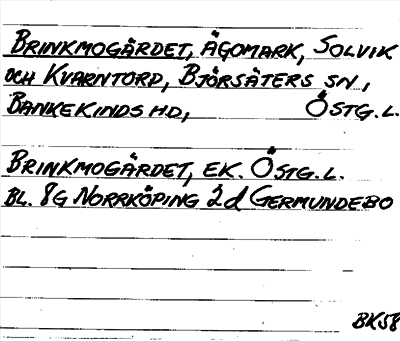 BRINKMOGÄRDET, ÄGOMARK, SOLVIK
OCH KVARNTORP, BJÖRSÄTERS SN,
BANKEKINDS HD, ÖSTG.L.
BRINKMOGÄRDET, EK. ÖSTG.L.
BL. 8G NORRKÖPING 2d GERMUNDEBO
BK58